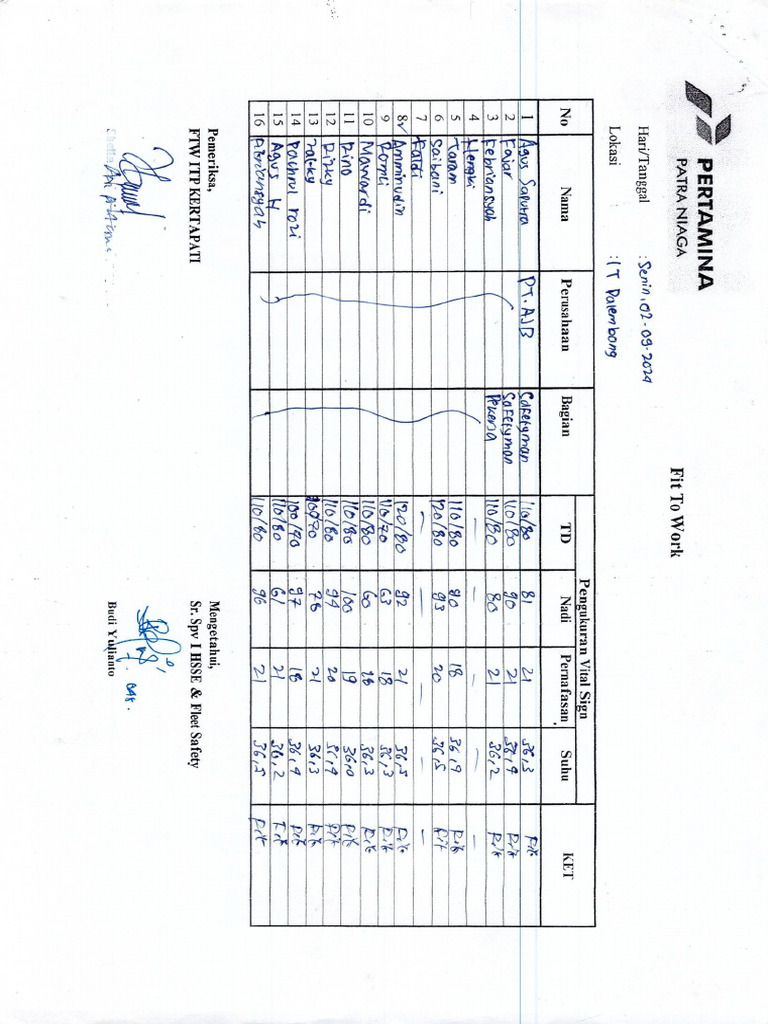 PERTAMINA
PATRA NIAGA
Fit To Work
Hari/Tanggal : Senin, 02-09-2024
Lokasi : IT Palembang
No Nama Perusahaan Bagian Pengukuran Vital Sign KET
TD Nadi Pernafasan Suhu
1 Agus Saputra PT. AJB Safetyman 110/80 81 21 36,3 Fit
2 Fajar Safetyman 110/80 90 21 36,4 Fit
3 Febriansyah Pekerja 110/80 80 21 36,2 Fit
4 Hengki — — — — —
5 Taram 110/80 90 18 36,9 Fit
6 Saibani 120/80 93 20 36,5 Fit
7 Faldi — — — — —
8 Amminudin 120/80 92 21 36,5 Fit
9 Romli 110/70 63 18 36,3 Fit
10 Mawardi 110/80 60 18 36,3 Fit
11 Rino 110/80 100 19 36,0 Fit
12 Rizky 110/80 94 20 36,9 Fit
13 Zalky 100/70 78 21 36,3 Fit
14 Pachrul rozi 100/90 97 18 36,9 Fit
15 Agus H 110/80 61 21 36,2 Fit
16 Abriansyah 110/80 96 21 36,5 Fit
Pemeriksa, Mengetahui,
FTW ITP KERTAPATI Sr. Spv I HSSE & Fleet Safety
Budi Yulianto